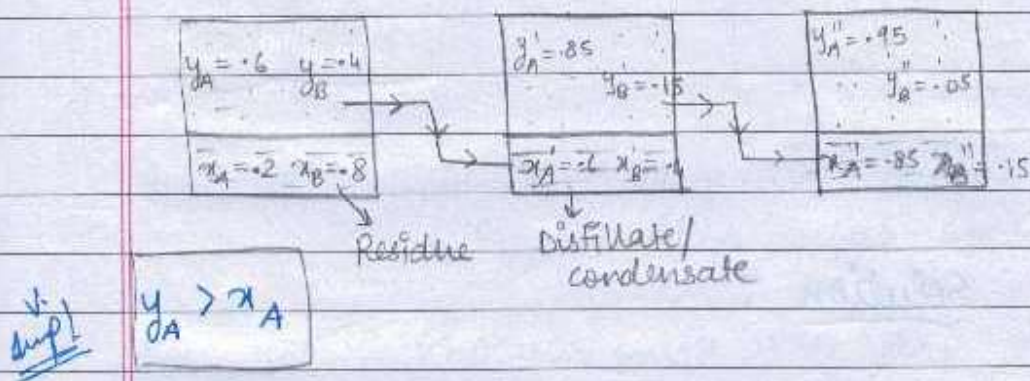 y_A = ·6 y_B = ·4
x_A = ·2 x_B = ·8
y'_A = ·85
y'_B = ·15
x'_A = ·6 x'_B = ·4
y''_A = ·95
y''_B = ·05
x''_A = ·85 x''_B = ·15
Residue
Distillate/
condensate
v.
Imp!
y_A > x_A